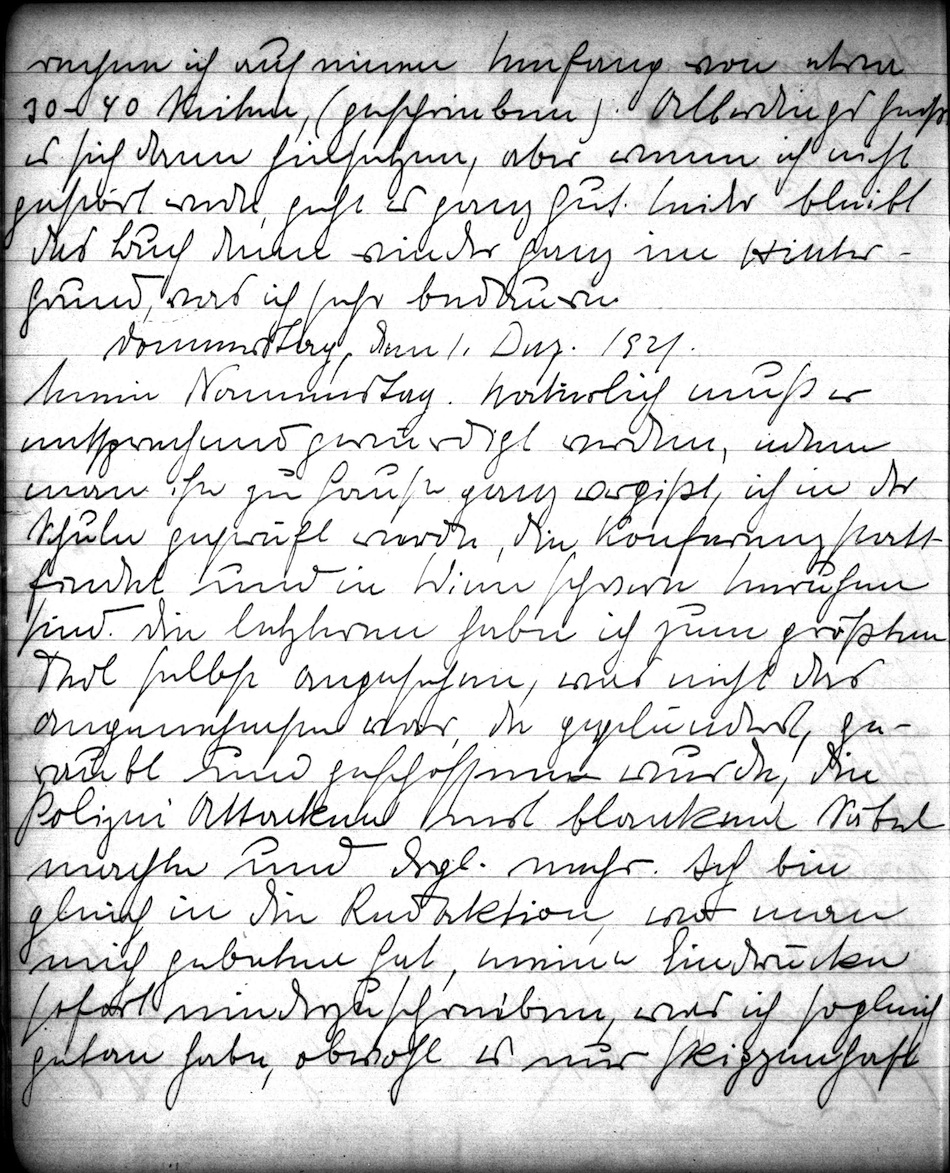 rechne ich auf einen Umfang von etwa
30-40 Seiten, (geschrieben). Allerdings heißt
es sich dann hinsetzen, aber wenn ich nicht
gestört werde, geht es ganz gut. Leider bleibt
das Buch dann wieder ganz im Hinter-
grund, was ich sehr bedaure
Donnerstag, den 1. Dez. 1921.
Mein Namenstag. Natürlich muß er
entsprechend gewürdigt werden, indem
man ihn zu Hause ganz vergißt, ich in der
Schule geprüft werde, die Konferenz statt-
findet und in Wien schwere Unruhen
sind. Die letzteren habe ich zum größten
Theil selbst angesehen, was nicht das
angenehmste war, da geplündert, ge-
raubt und geschossen wurde, die
Polizei Attacken mit blankem Säbel
machte und drgl. mehr. Ich bin
gleich in die Redaktion, wo man
mich gebeten hat, meine Eindrücke
sofort niederzuschreiben, was ich sogleich
getan habe, obwohl es nur skizzenhaft